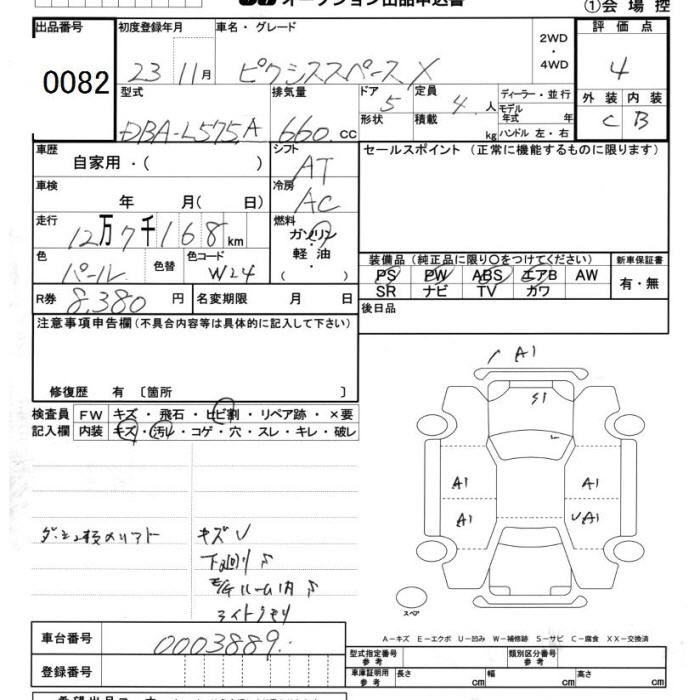 オークション出品申込書
①会場控
出品番号
0082
初度登録年月
23 11月
車名・グレード
ピクシススペース X
2WD
・
4WD
評価点
4
外装 内装
C B
型式
DBA-L575A
排気量
660 cc
ドア
5
形状
定員
4 人
積載
kg
ディーラー・並行
モデル年式 年
ハンドル 左・右
車歴
自家用・( )
シフト
AT
セールスポイント (正常に機能するものに限ります)
車検
年 月( 日)
冷房
AC
走行
12万7千168km
燃料
ガソリン
・
軽油
・
( )
色
パール
色替
色コード
W24
装備品 (純正品に限り○をつけてください)
PS PW ABS エアB AW
SR ナビ TV カワ
新車保証書
有・無
R券 8,380 円
名変期限 月 日
後日品
注意事項申告欄 (不具合内容等は具体的に記入して下さい)
修復歴 有 〔箇所 〕
検査員
記入欄
FW キズ・飛石・ヒビ割・リペア跡・×要
内装 キズ・汚レ・コゲ・穴・スレ・キレ・破レ
A1
S1
A1 A1
A1 A1
キズ
下廻りS
スペア
A-キズ E-エクボ U-凹み W-補修跡 S-サビ C-腐食 XX-交換済
車台番号 0003889
登録番号
型式指定番号
参考
類別区分番号
参考
車庫証明用
参考
長さ cm 幅 cm 高さ cm